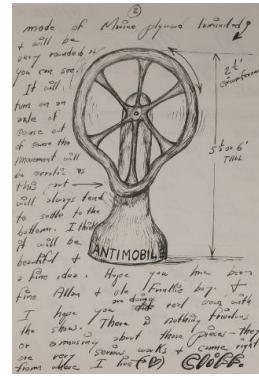 ②
made of Marine plywood laminated &
will be
very rounded as
you can see.
It will
turn on an
axle of
course but
of course the
movement will
be erratic as
this part →
will always tend
to settle to the
bottom. I think
it will be
beautiful &
a fine idea. Hope you have been
fine Allan & ole Frankie boy. &
I hope you are doing real well with
the show. There is nothing frivolous
or amusing about these pieces - they
are very serious works & come right
from where I live
CLIFF.
2½'
circumference
5½ or 6'
TALL
ANTIMOBILE